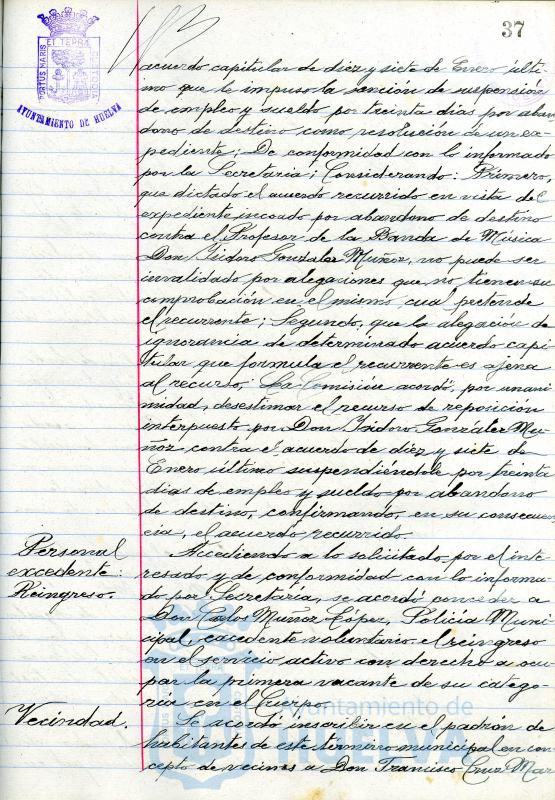 37
PORTUS MARIS
ET TERRÆ
CUSTODIA
AYUNTAMIENTO DE HUELVA
acuerdo capitular de diez y siete de Enero últi-
mo que le impuso la sanción de suspensión
de empleo y sueldo por treinta días por aban-
dono de destino como resolución de un ex-
pediente; De conformidad con lo informado
por la Secretaria; Considerando: Primero,
que dictado el acuerdo recurrido en vista del
expediente incoado por abandono de destino
contra el Profesor de la Banda de Música
Don Isidoro Gonzalez Muñoz, no puede ser
invalidado por alegaciones que no tienen su
comprobación en el mismo cual pretende
el recurrente; Segundo, que la alegación de
ignorancia de determinado acuerdo capi-
tular que formula el recurrente es ajena
al recurso, La Comisión acordó, por unani-
midad, desestimar el recurso de reposición
interpuesto por Don Isidoro Gonzalez Mu-
ñoz contra el acuerdo de diez y siete de
Enero último suspendiéndole por treinta
dias de empleo y sueldo por abandono
de destino, confirmando, en su consecuen-
cia, el acuerdo recurrido.
Personal
excedente:
Reingreso.
Accediendo a lo solicitado por el inte-
resado y de conformidad con lo informa-
do por Secretaría, se acordó conceder a
Don Carlos Muñoz López, Policía Muni-
cipal, excedente voluntario, el reingreso
en el servicio activo con derecho a ocu-
par la primera vacante de su catego-
ría en el Cuerpo.
Vecindad.
Se acordó inscribir en el padrón de
habitantes de este término municipal en con-
cepto de vecinos a Don Francisco Cruz Mar
Ayuntamiento de
HUELVA